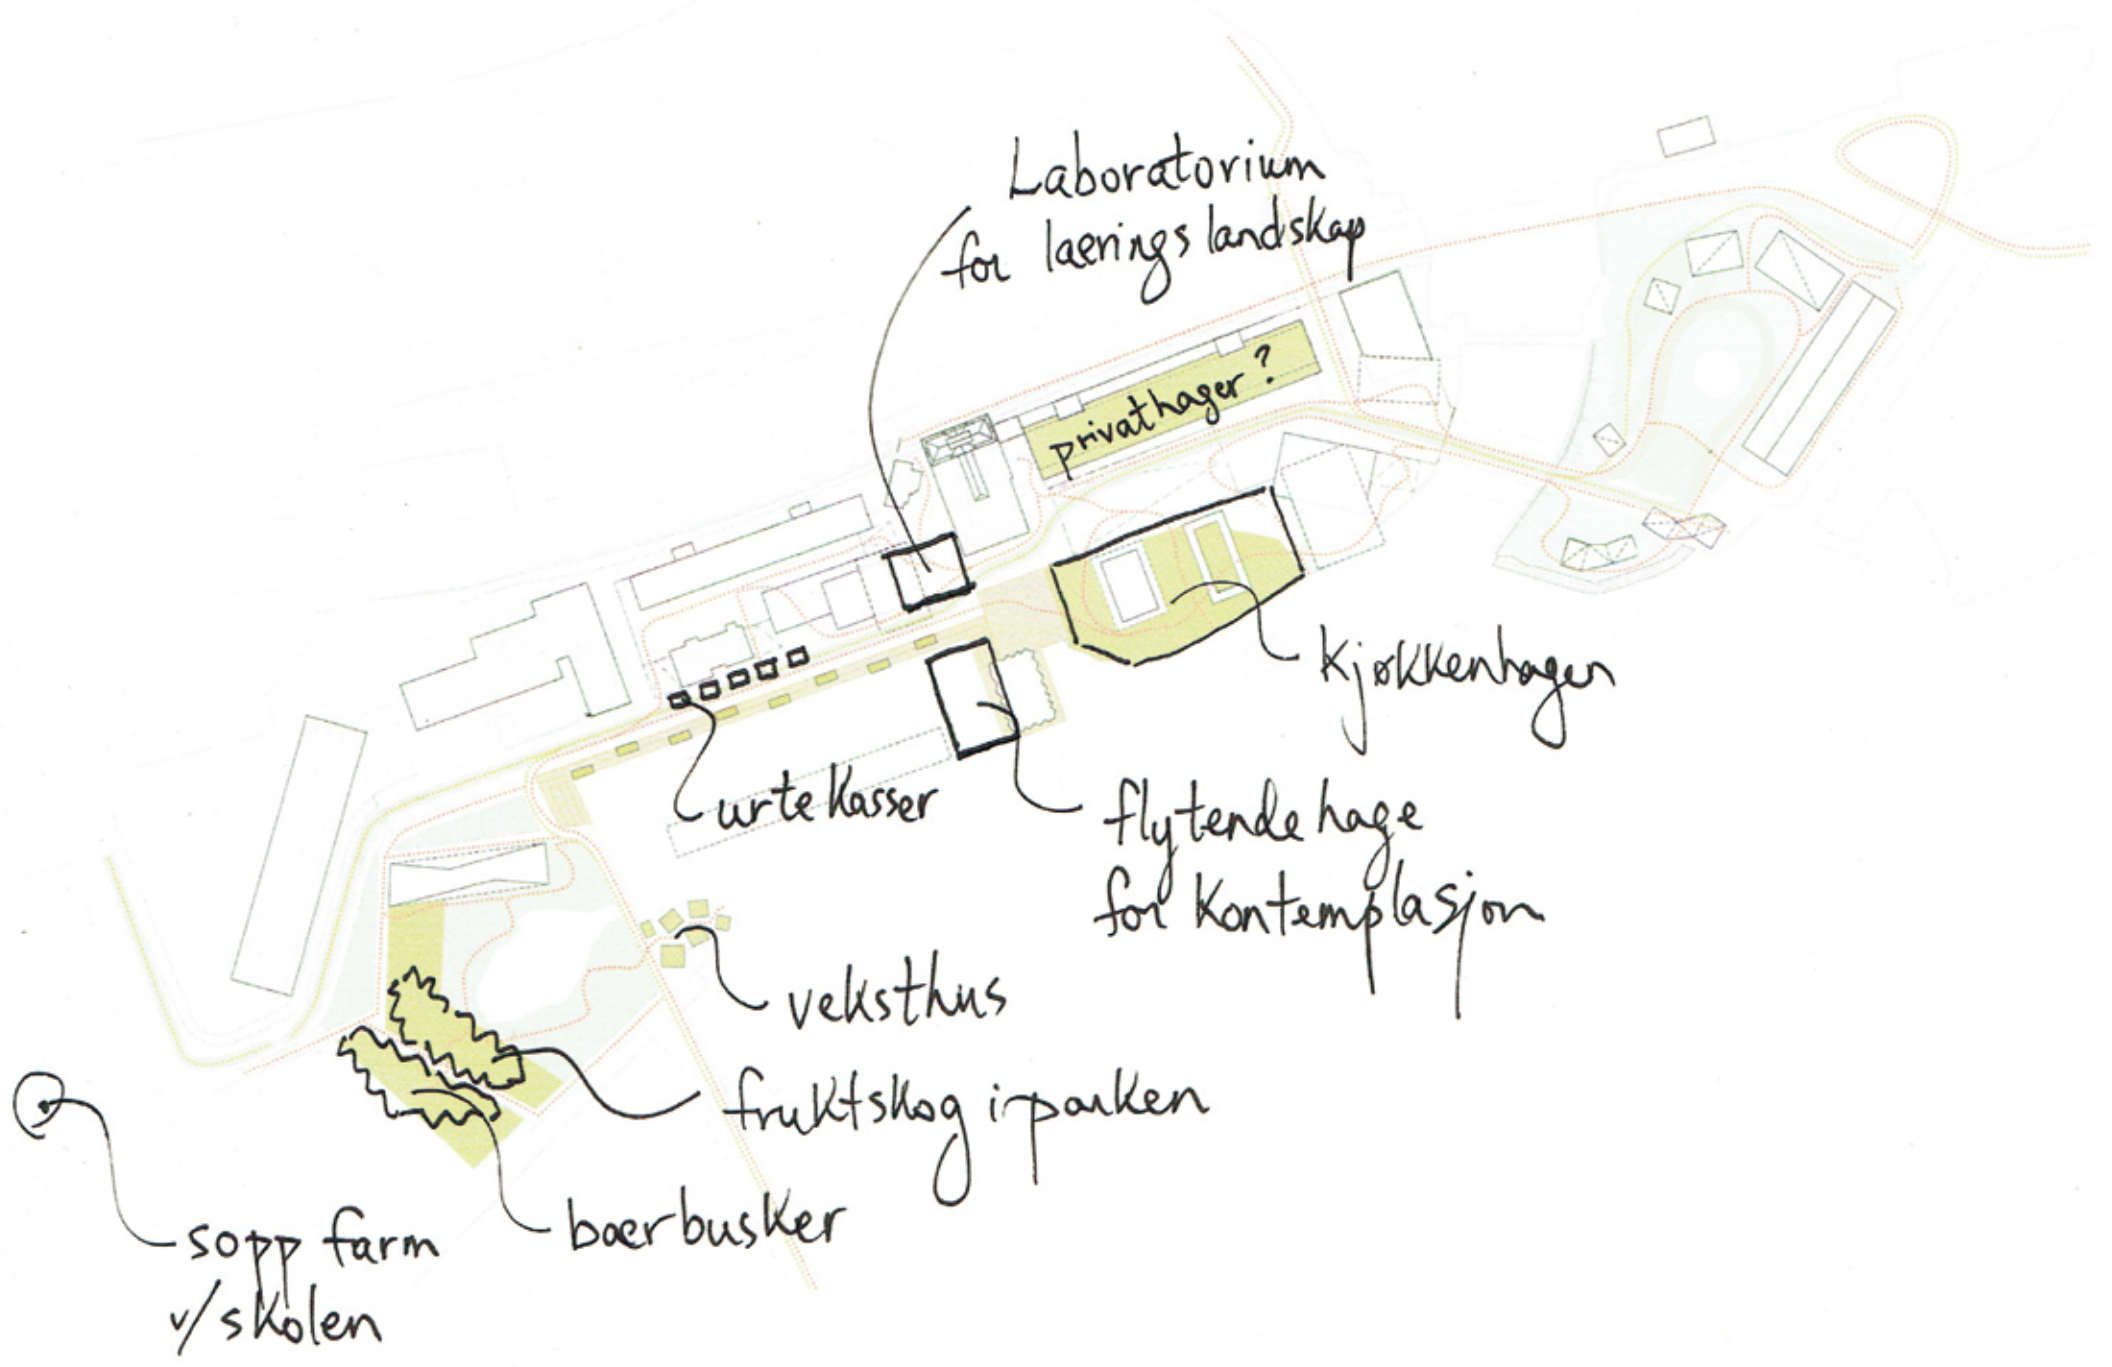 Laboratorium
for lærings landskap
privathager?
kjøkkenhagen
urtekasser
flytende hage
for kontemplasjon
veksthus
fruktskog i parken
bærbusker
sopp farm
v/skolen